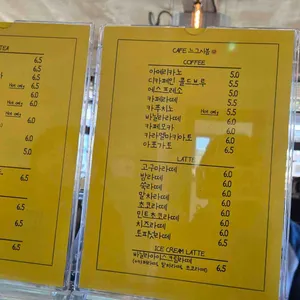 TEA
6.5
6.5
Hot only 6.0
6.5
6.5
6.0
6.0
6.0
6.5
6.5
CAFE 느그시봄
COFFEE
아메리카노 5.0
디카페인 콜드브루 5.5
에스프레소 5.0
카페라떼 5.5
카푸치노 Hot only 5.5
바닐라라떼 6.0
카페모카 6.0
카라멜마키아토 6.5
아포가토 6.5
LATTE
고구마라떼 6.0
밤라떼 6.0
쑥라떼 6.0
말차라떼 6.0
초코라떼 6.0
민트초코라떼 6.0
치즈라떼 6.0
토피넛라떼 6.0
ICE CREAM LATTE
바닐라아이스크림라떼 6.5